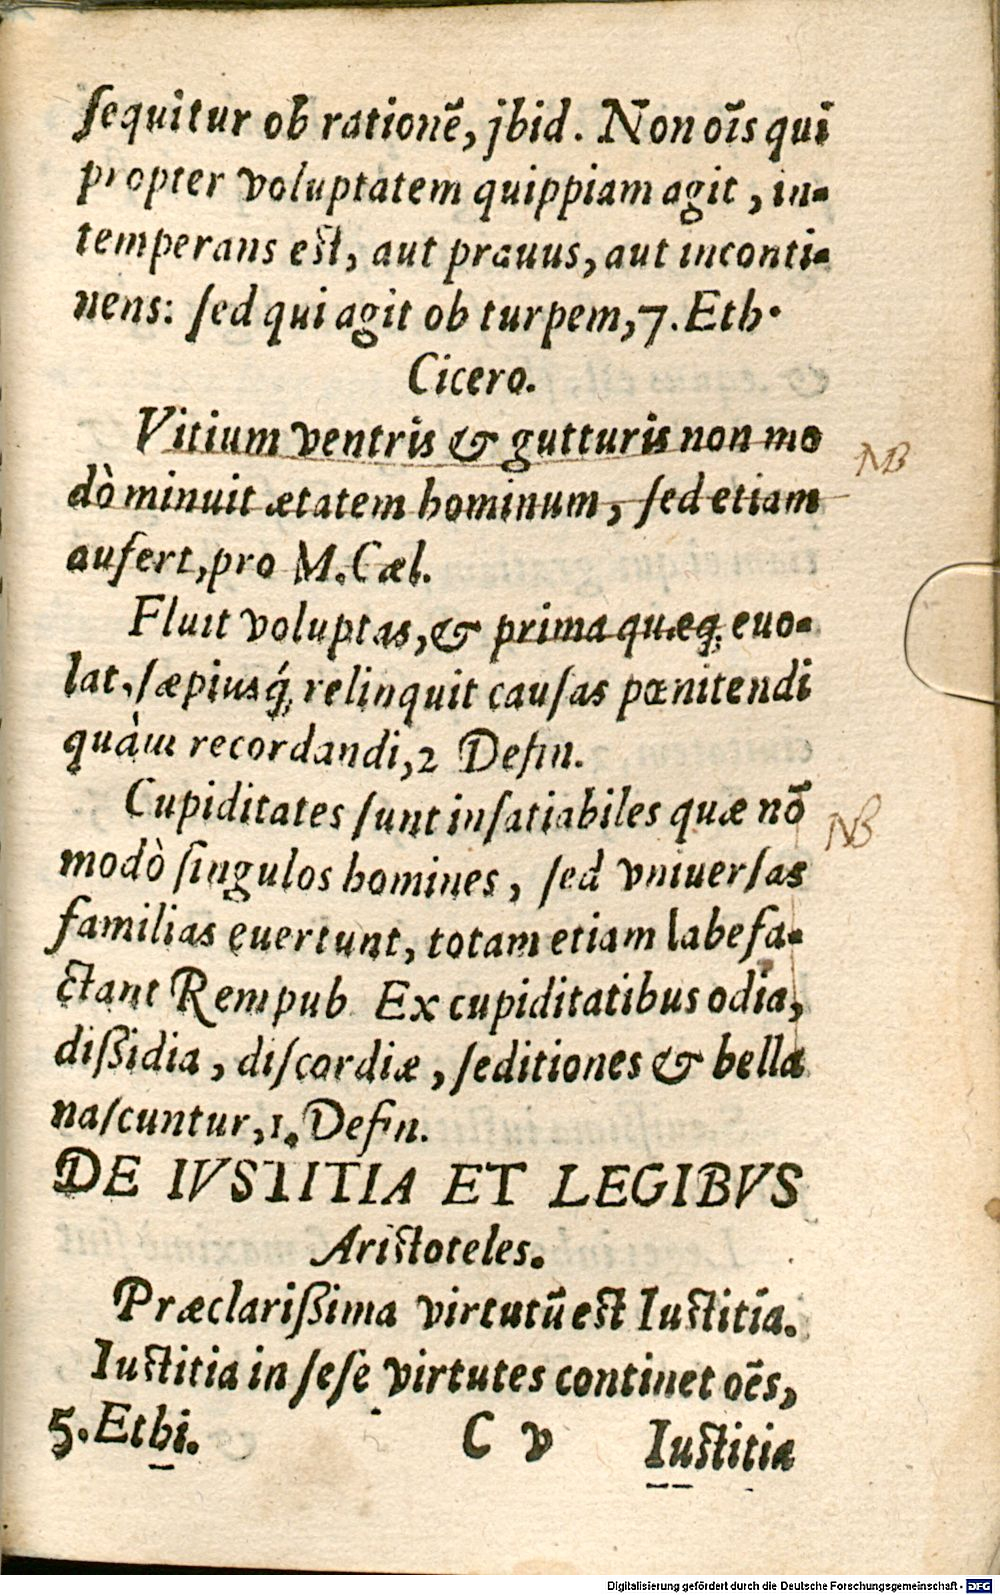 ſequitur ob rationē, jbid. Non oīs qui
propter voluptatem quippiam agit, in-
temperans est, aut prauus, aut inconti-
nens: ſed qui agit ob turpem, 7. Eth.
Cicero.
Vitium ventris & gutturis non mo
dò minuit ætatem hominum, ſed etiam
aufert, pro M. Cæl.
NB
Fluit voluptas, & prima quæq; euo-
lat, ſæpiusq́; relinquit cauſas pœnitendi
quàm recordandi, 2 Defin.
Cupiditates ſunt inſatiabiles quæ nō
NB
modò ſingulos homines, ſed vniuerſas
familias euertunt, totam etiam labefa-
ctant Rempub Ex cupiditatibus odia,
diſsidia, diſcordiæ, ſeditiones & bella
naſcuntur, 1. Defin.
DE IVSTITIA ET LEGIBVS
Aristoteles.
Præclariſsima virtutū est Iustitia.
Iustitia in ſeſe virtutes continet oēs,
5. Ethi. C v Iustitia
Digitalisierung gefördert durch die Deutsche Forschungsgemeinschaft - DFG